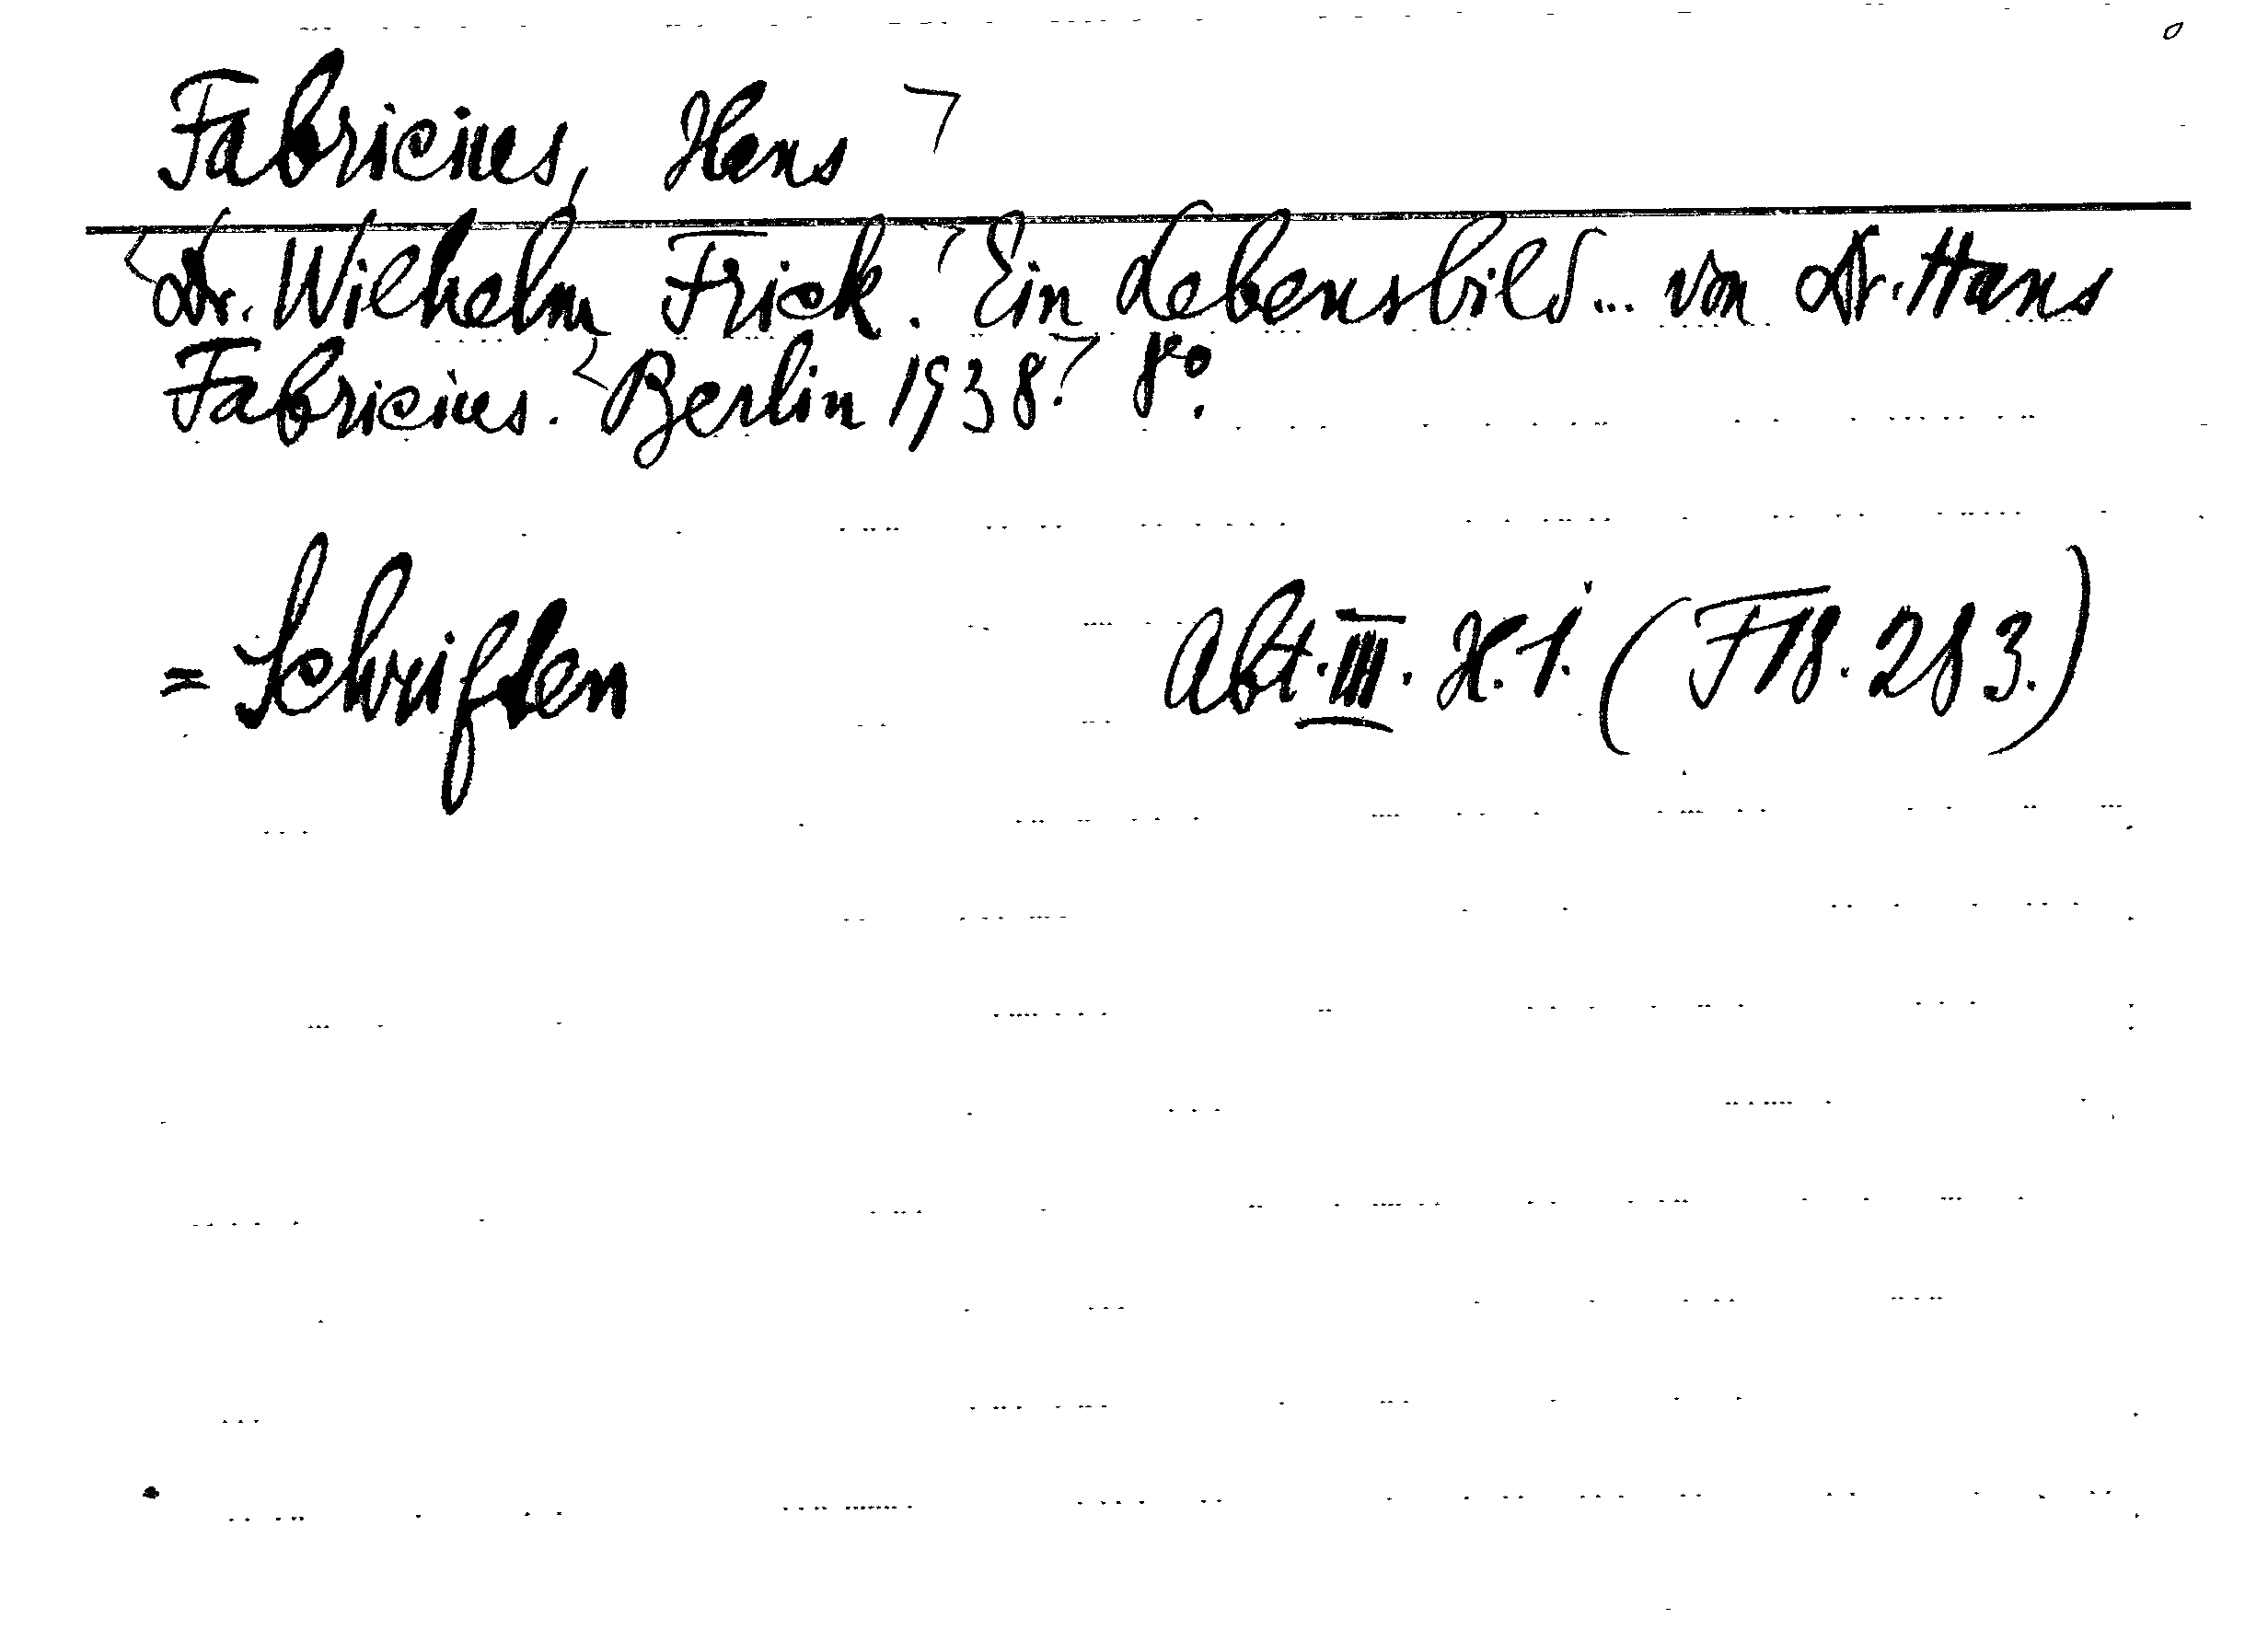 Fabricius, Hans
Dr. Wilhelm Frick. Ein Lebensbild ... von Dr. Hans
Fabricius. Berlin 1938. 8o.
= Schriften Abt. III. H. 1. (F 18. 283.)